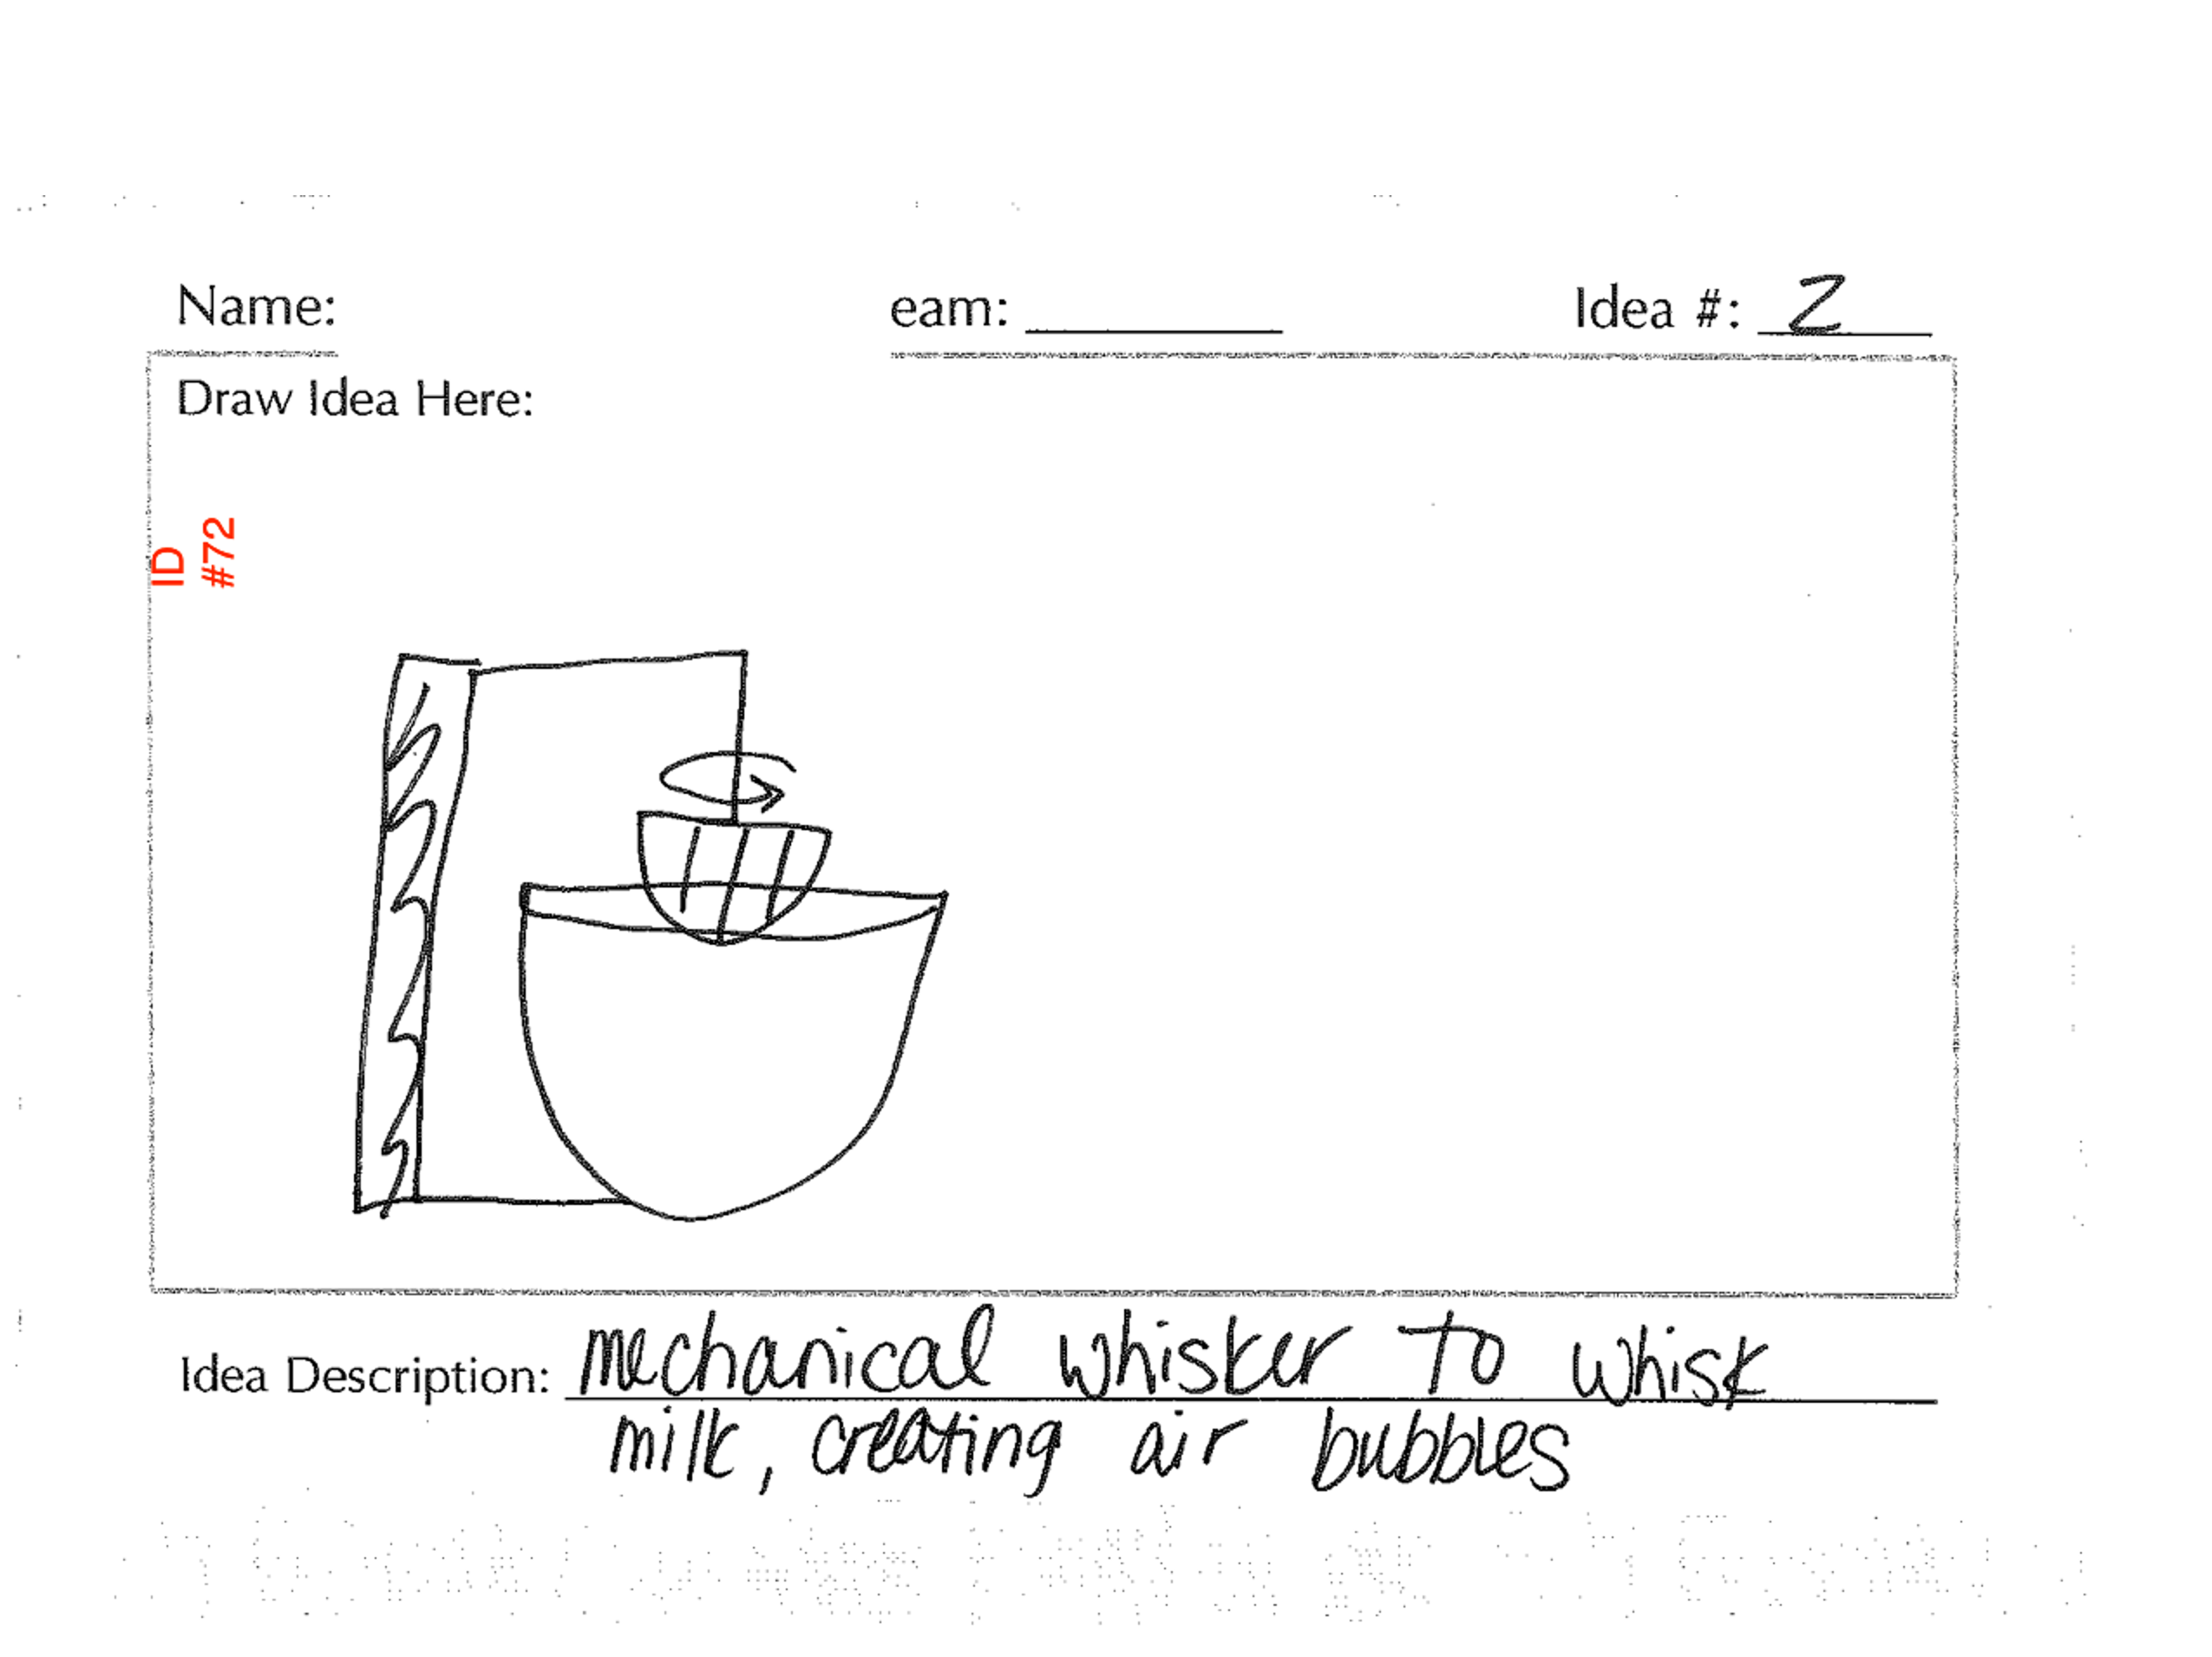 Name: eam: Idea #: 2
Draw Idea Here:
ID
#72
Idea Description: mechanical whisker to whisk
milk, creating air bubbles